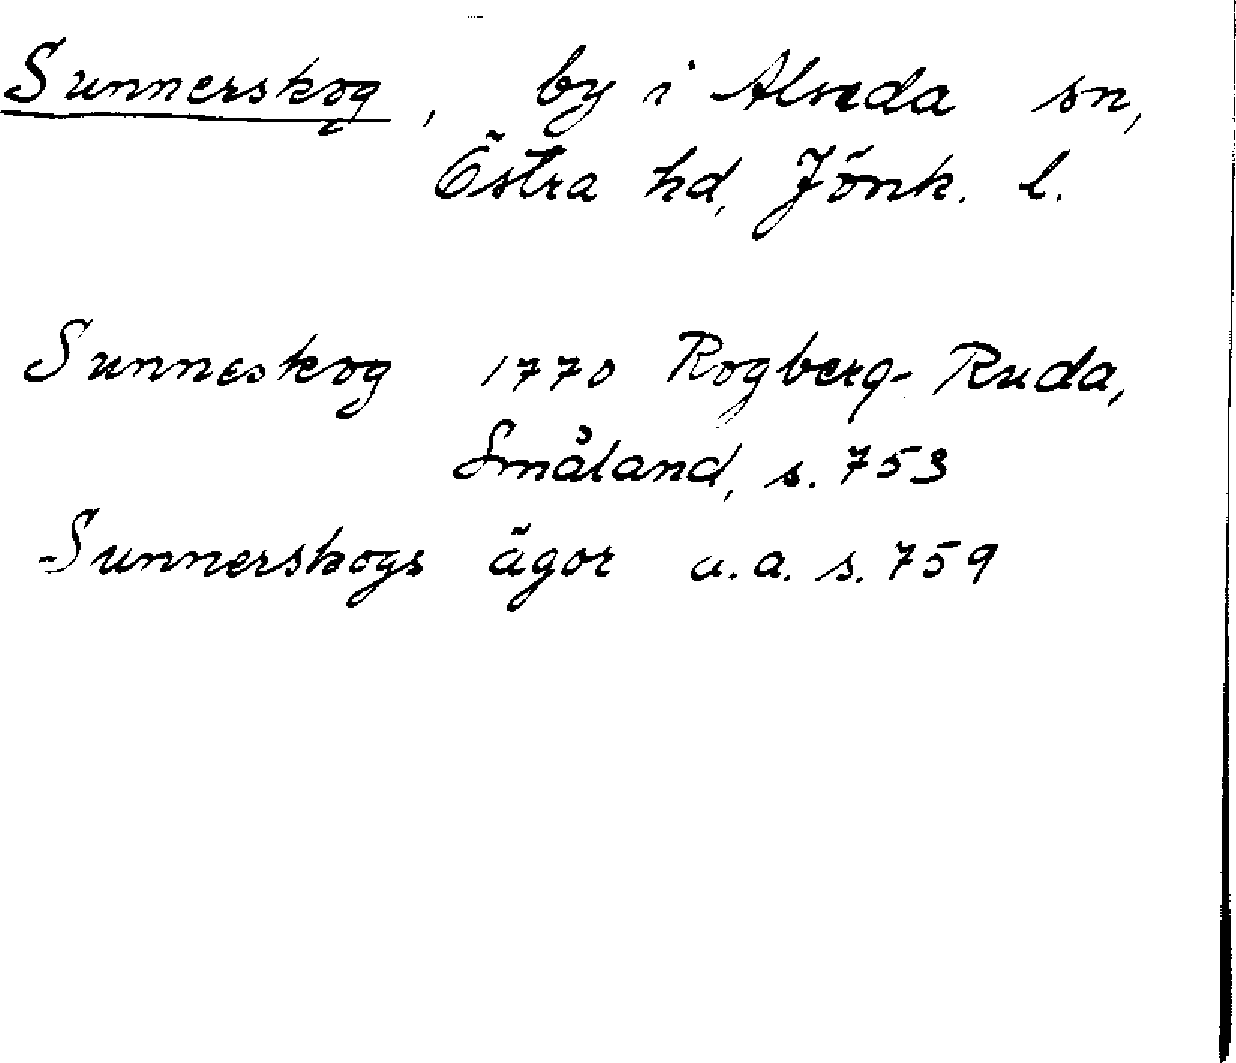 Sunnerskog, by i Alseda sn,
Östra hd, Jönk. l.
Sunneskog 1770 Rogberg-Ruda,
Småland, s. 753
Sunnerskogs ägor a.a. s. 759